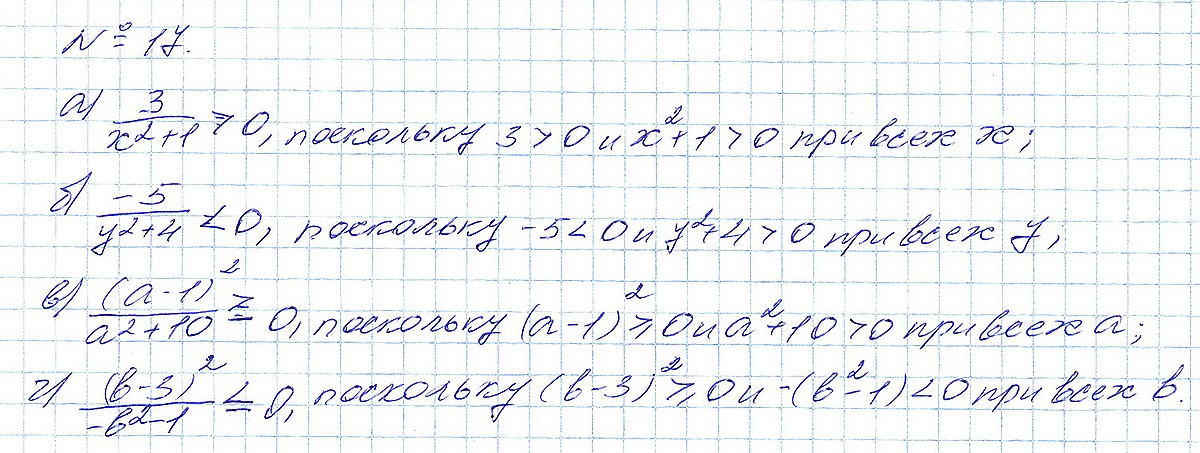 № 17.
а) 3/(x²+1) > 0, поскольку 3 > 0 и x²+1 > 0 при всех x;
б) -5/(y²+4) < 0, поскольку -5 < 0 и y²+4 > 0 при всех y;
в) (a-1)²/(a²+10) ≥ 0, поскольку (a-1)² ≥ 0 и a²+10 > 0 при всех a;
г) (b-3)²/(-b²-1) ≤ 0, поскольку (b-3)² ≥ 0 и -(b²-1) < 0 при всех b.